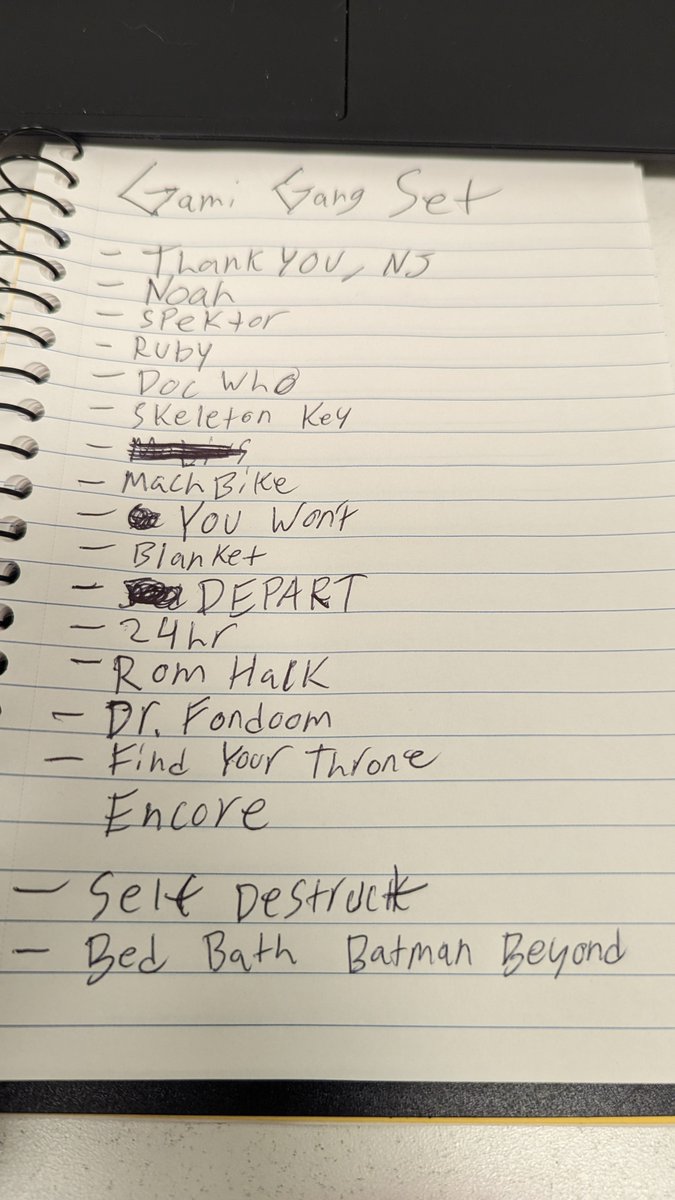 Gami Gang Set
- Thank YOU, NJ
- Noah
- Spektor
- Ruby
- Doc Who
- Skeleton Key
-
- Mach Bike
- You Won't
- Blanket
- DEPART
- 24hr
- Rom Hack
- Dr. Fondoom
- Find Your Throne
Encore
- Self Destruct
- Bed Bath Batman Beyond